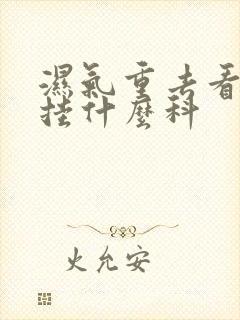 濕氣重去看
挂什麼科
火允安